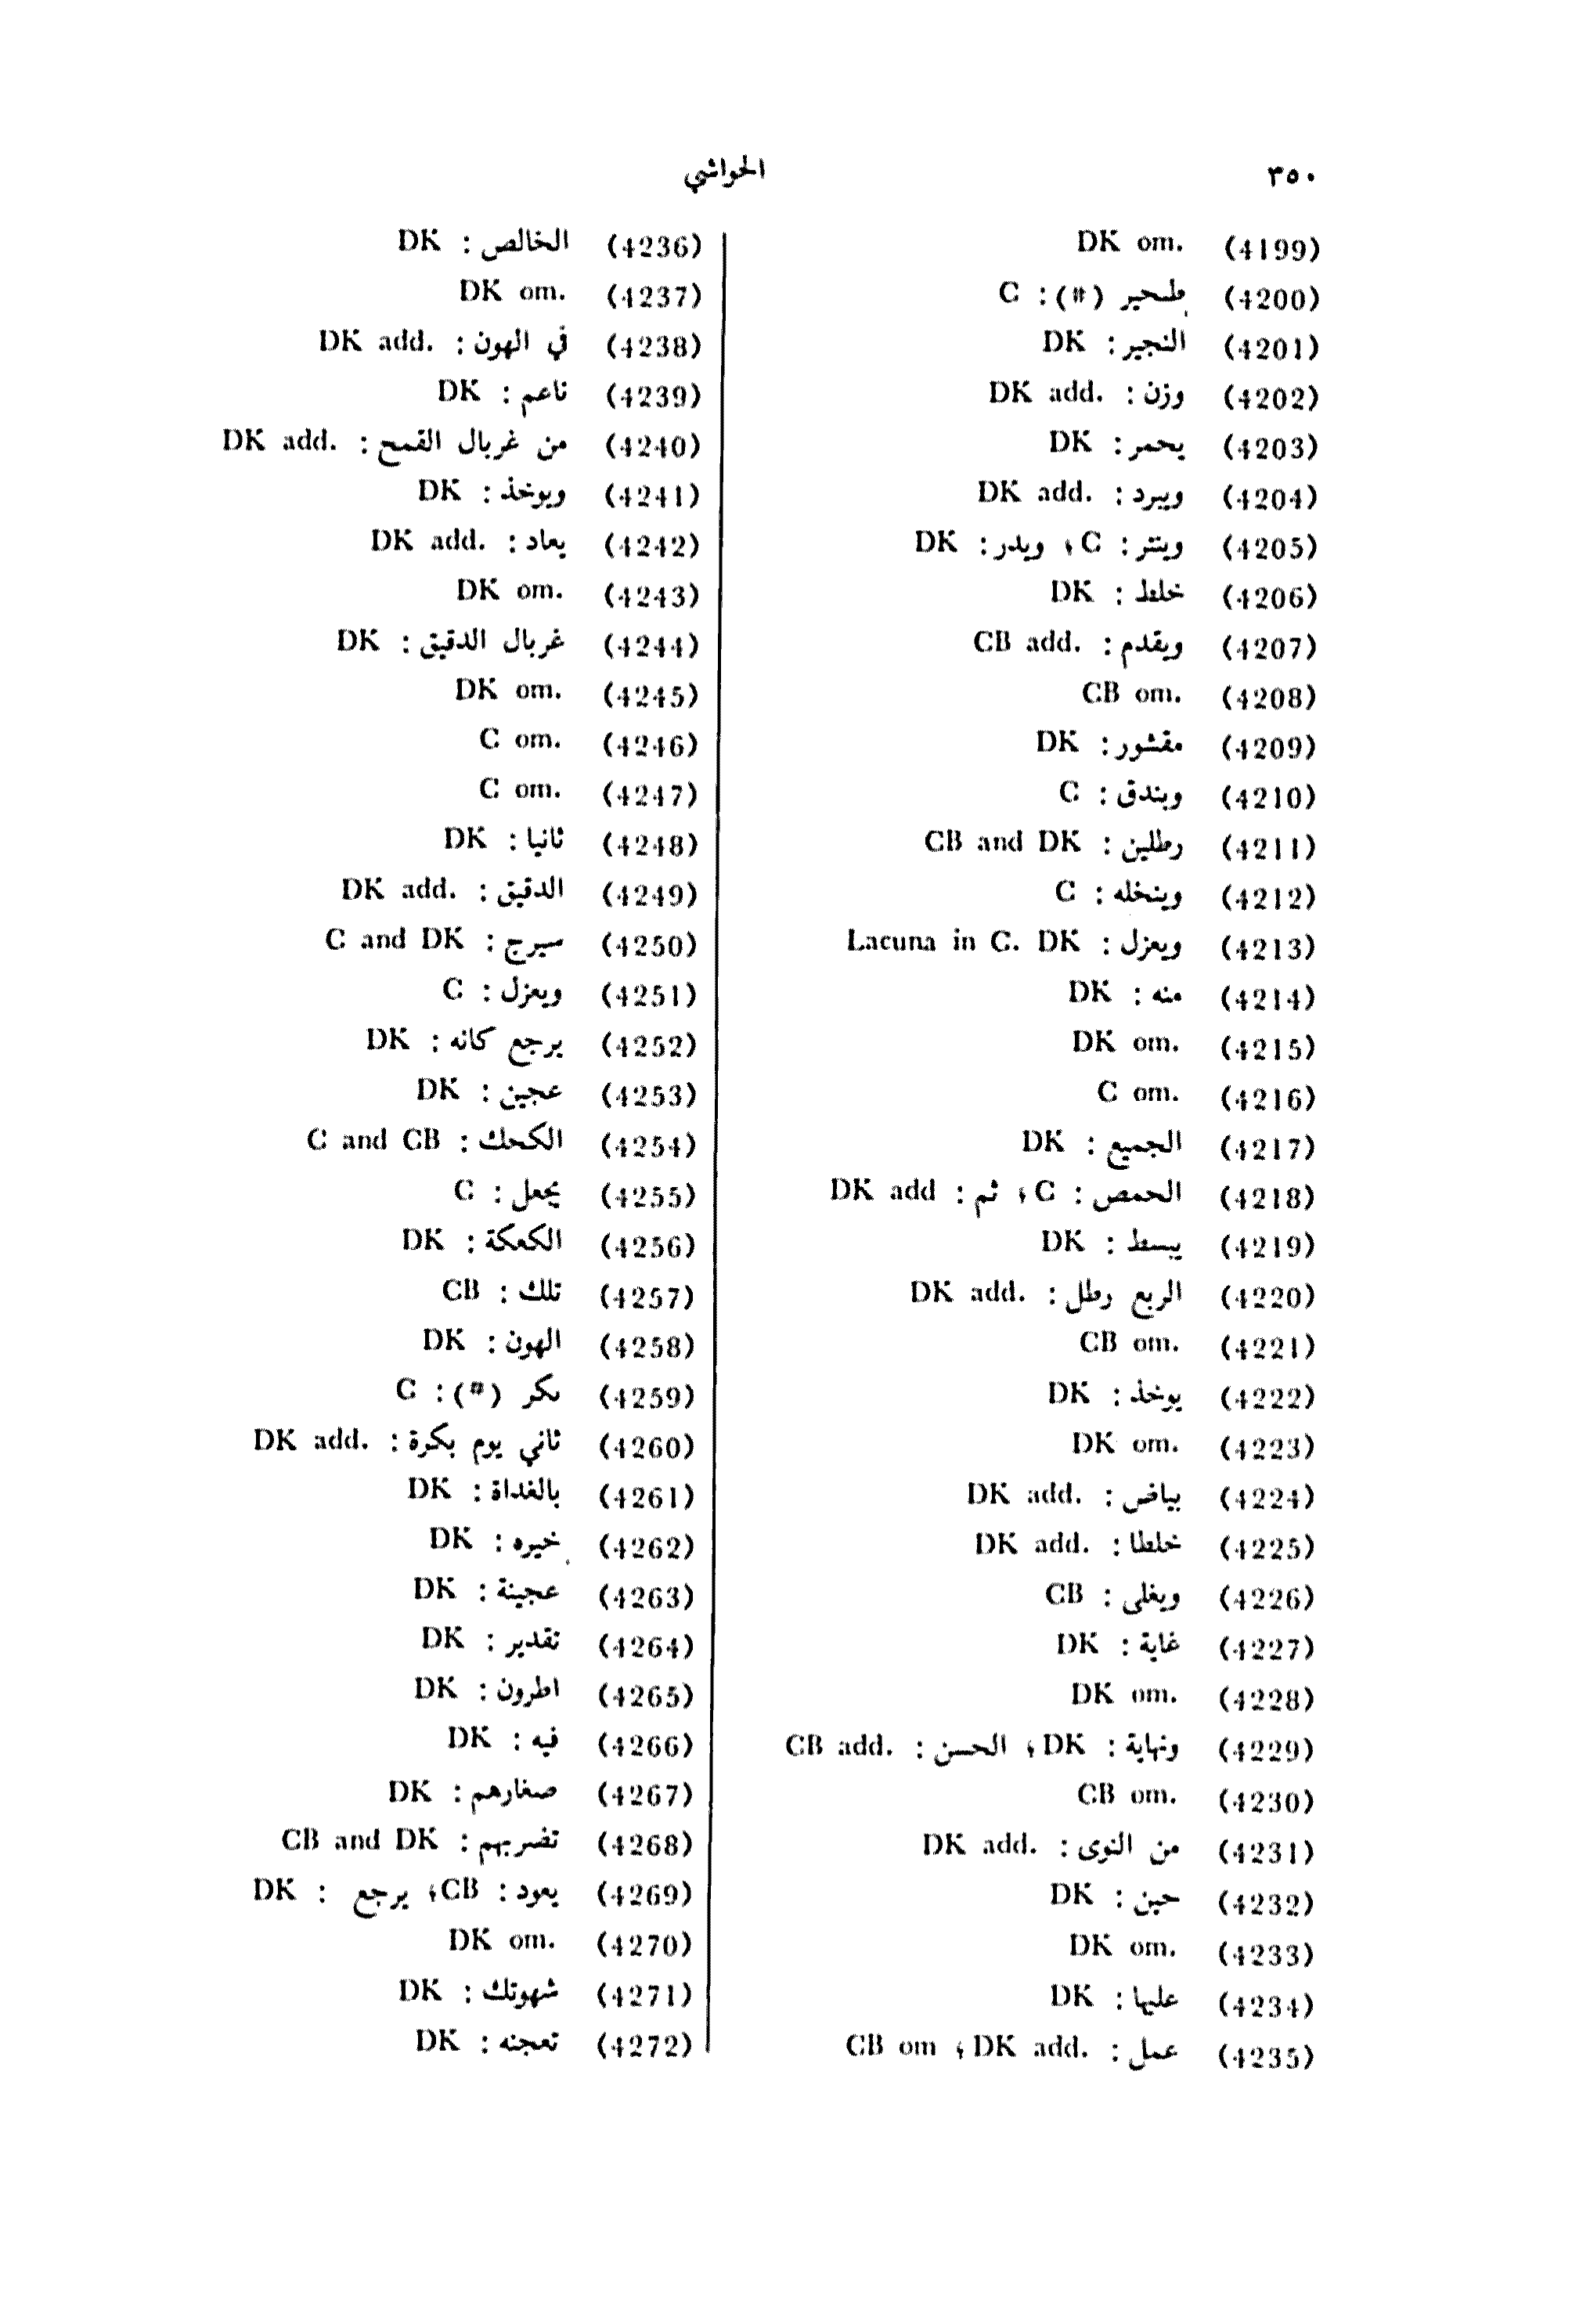 ٣٥٠
الحواشي
(4199) DK om.
(4200) طحير (*) : C
(4201) النجير : DK
(4202) وزن : DK add.
(4203) يحمر : DK
(4204) ويبرد : DK add.
(4205) وينثر : C ؛ ويدر : DK
(4206) خلط : DK
(4207) ويقدم : CB add.
(4208) CB om.
(4209) مقشور : DK
(4210) وبندق : C
(4211) رطلين : CB and DK
(4212) وينخله : C
(4213) ويعزل : Lacuna in C. DK
(4214) منه : DK
(4215) DK om.
(4216) C om.
(4217) الجميع : DK
(4218) الحمص : C ؛ ثم : DK add
(4219) يبسط : DK
(4220) الربع رطل : DK add.
(4221) CB om.
(4222) يوخذ : DK
(4223) DK om.
(4224) بياض : DK add.
(4225) خلطا : DK add.
(4226) ويغلى : CB
(4227) غاية : DK
(4228) DK om.
(4229) ونهاية : DK ؛ الحسن : CB add.
(4230) CB om.
(4231) من النوى : DK add.
(4232) حين : DK
(4233) DK om.
(4234) عليها : DK
(4235) عمل : DK add. ؛ CB om
(4236) الخالص : DK
(4237) DK om.
(4238) في الهون : DK add.
(4239) ناعم : DK
(4240) من غربال القمح : DK add.
(4241) ويوخذ : DK
(4242) يعاد : DK add.
(4243) DK om.
(4244) غربال الدقيق : DK
(4245) DK om.
(4246) C om.
(4247) C om.
(4248) ثانيا : DK
(4249) الدقيق : DK add.
(4250) سيرج : C and DK
(4251) ويعزل : C
(4252) يرجع كانه : DK
(4253) عجين : DK
(4254) الكحك : C and CB
(4255) يجعل : C
(4256) الكعكة : DK
(4257) تلك : CB
(4258) الهون : DK
(4259) بكر (*) : C
(4260) ثاني يوم بكرة : DK add.
(4261) بالغداة : DK
(4262) خيره : DK
(4263) عجينة : DK
(4264) تقدير : DK
(4265) اطرون : DK
(4266) فيه : DK
(4267) صغارهم : DK
(4268) تضربهم : CB and DK
(4269) يعود : CB ؛ يرجع : DK
(4270) DK om.
(4271) شهوتك : DK
(4272) تعجنه : DK